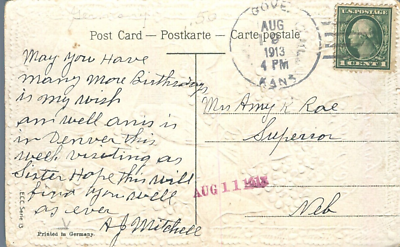 GOVE
AUG
1913
4 PM
KANS
U.S. POSTAGE
1 CENT 1
Post Card — Postkarte — Carte postale
May You Have
many more Birthdays
is my wish
am well amis is
in Denver this
week visiting as
Sister Hope this will
find you well
as ever
A J Mitchell
Mrs Amy R Rae
Superior
Neb
AUG 11 1913
ECC Serie
Printed in Germany.